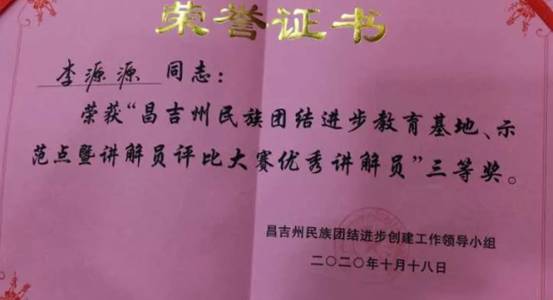 荣誉证书
李源源 同志：
荣获“昌吉州民族团结进步教育基地、示
范点暨讲解员评比大赛优秀讲解员”三等奖。
昌吉州民族团结进步创建工作领导小组
二〇二〇年十月十八日